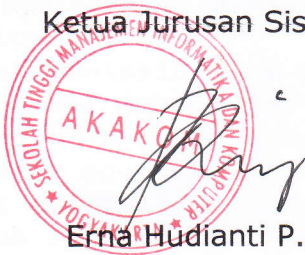 Ketua Jurusan Sis
SEKOLAH TINGGI MANAJEMEN INFORMATIKA DAN KOMPUTER
AKAKOM
★ YOGYAKARTA ★
Erna Hudianti P.